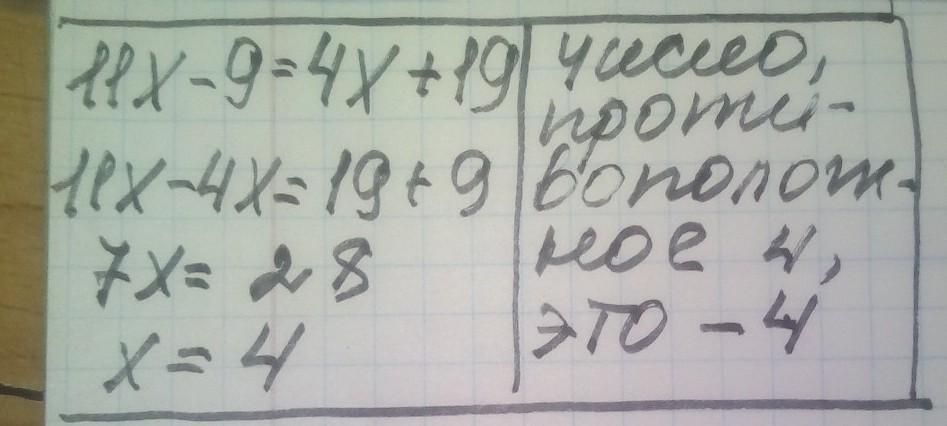 11x-9=4x+19
11x-4x=19+9
7x=28
x=4
число,
проти-
вополож-
ное 4,
это -4